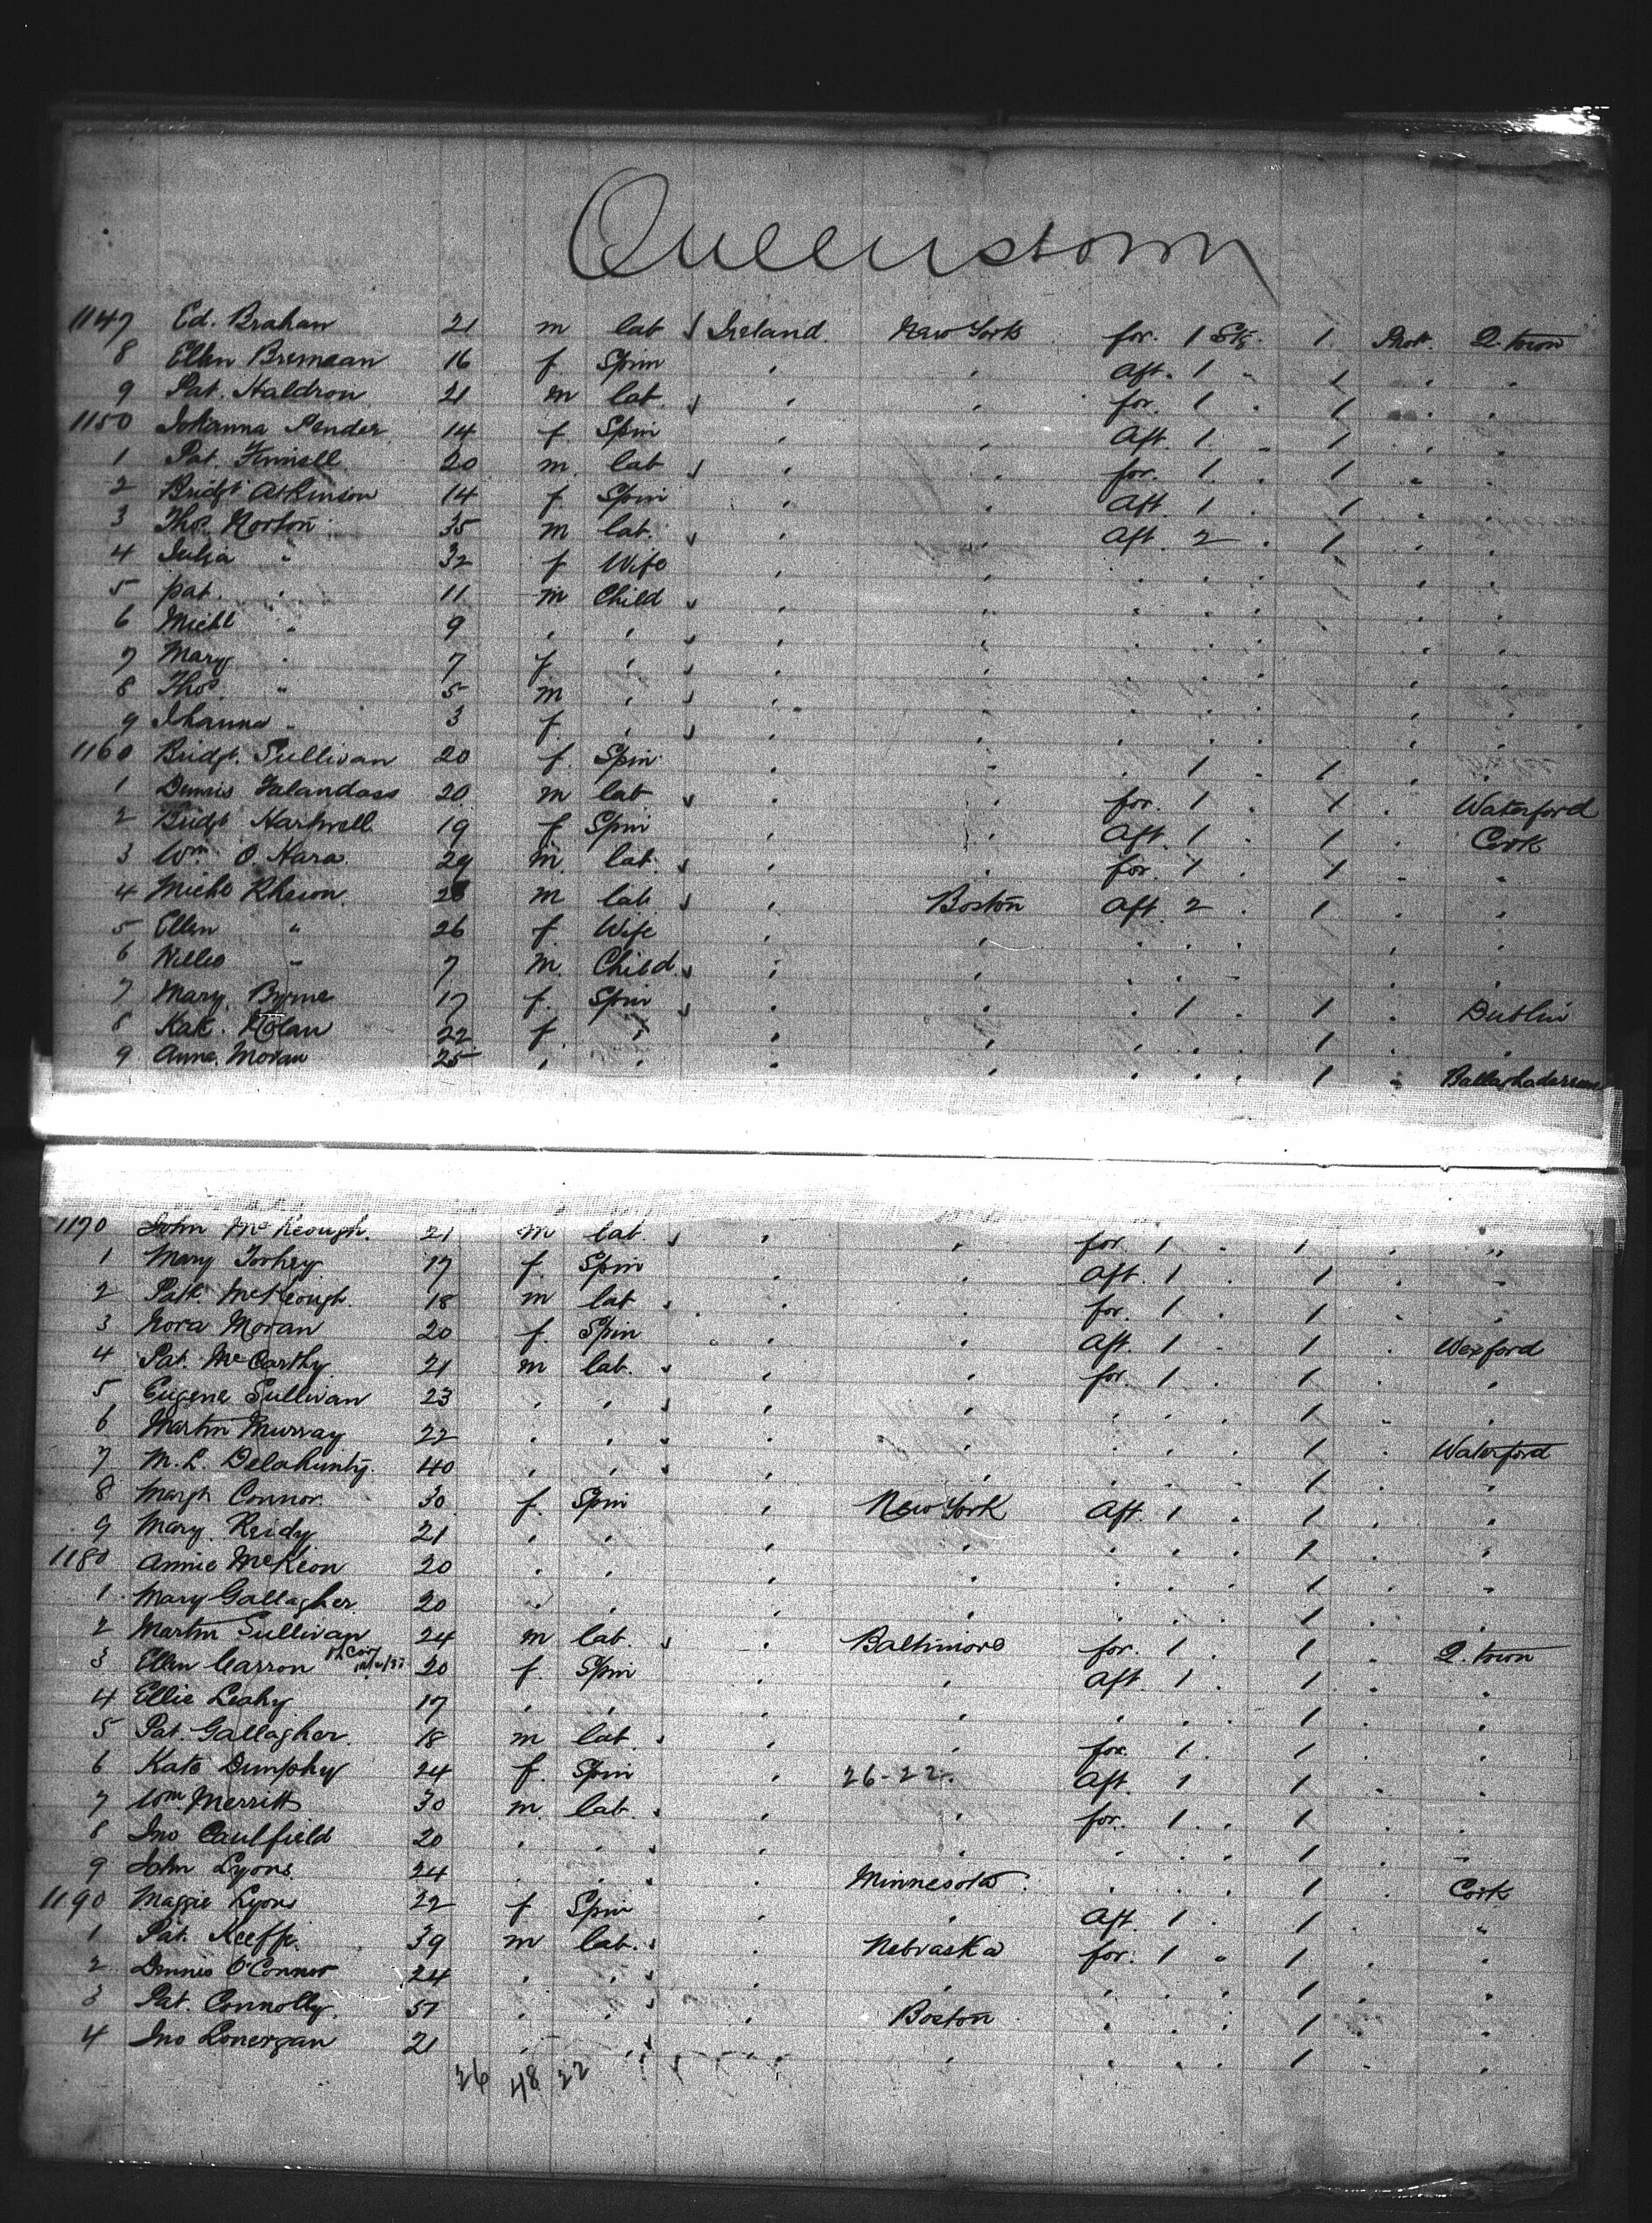 Queenstown
1147 Ed. Brahan 21 m lab Ireland. New York for. 1 Stg. 1. Q. town
8 Ellen Brennan 16 f. Spin " " Aft. 1 " 1 " "
9 Pat. Haldron 21 m lab. " " for. 1 . 1 " "
1150 Johanna Pender 14 f. Spin " " Aft. 1 " 1 " "
1 Pat. Fennell 20 m. lab " " for. 1. . 1 " "
2 Bridgt Atkinson 14 f. Spin " " Aft. 1 . 1 " "
3 Thos. Norton 35 m lab. " " Aft. 2 . 1 " "
4 Julia " 32 f Wife " " " " " "
5 pat. " 11 m Child " " " " " "
6 Michl " 9 " " " " " " " "
7 Mary " 7 f " " " " " " "
8 Thos. " 5 m " " " " " " "
9 Johanna " 3 f. " " " " " " "
1160 Bridgt. Sullivan 20 f. Spin " " " 1 " 1 " "
1 Dennis 20 m lab " " for. 1 . 1 " Waterford
2 Bridgt Hartwell 19 f Spin " " Aft. 1 . 1 " Cork
3 Wm O. Hara 29 m. lab. " " for. 1 . 1 " "
4 Michl 28 m lab " Boston Aft. 2 . 1 " "
5 Ellen " 26 f. Wife " " " " " "
6 " 7 m. Child " " " " " "
7 Mary Byrne 17 f. Spin " " " 1 . 1 . Dublin
8 Kate. Nolan 22 f. " " " " " 1 " "
9 Anna. Moran 25 " " " " " " 1 "
1170 John McKeough. 21 m lab. " " for. 1 . 1 . "
1 Mary Toohey 17 f. Spin " " Aft. 1 . 1 . "
2 Patk. McKeough. 18 m lab " " for. 1 . 1 . "
3 Nora Moran 20 f. Spin " " Aft 1 . 1 . Wexford
4 Pat. McCarthy 21 m lab. " " for. 1 . 1 . "
5 Eugene Sullivan 23 " " " " " " 1 " "
6 Martin Murray 22 " " " " " " 1 . Waterford
7 M. L. Delahunty. 40 " " " " " " 1 . "
8 Margt Connor. 30 f. Spin " New York Aft. 1 . 1 . "
9 Mary. Reidy 21 " " " " " " 1 . "
1180 Annie McKeon 20 " " " " " " 1 . "
1 Mary Gallagher 20 " " " " " " 1 . "
2 Martin Sullivan 24 m lab. " Baltimore for. 1 . 1 . Q. town
3 Ellen Carron 20 f. Spin " " Aft 1 . 1 . "
4 Ellie Leahy 17 " " " " " " 1 . "
5 Pat. Gallagher. 18 m lab. " " for. 1 . 1 . "
6 Kate Dunphy 24 f. Spin " 26-22. Aft 1 1 . "
7 Wm. Merritt 30 m. lab. " " for. 1 . 1 . "
8 Jno Caulfield 20 " " " " " " 1 . "
9 John Lyons. 24 " " " Minnesota " " 1 . Cork
1190 Maggie Lyons 22 f. Spin " " Aft. 1 . 1 . "
1 Pat. Keeffe. 39 m lab. " Nebraska for. 1 . 1 . "
2 Dennis O'Connor 24 " " " " " " 1 . "
3 Pat. Connolly. 51 " " " Boston " " 1 . "
4 Jno Lonergan 21 " " " " " " 1 . "
26 48 22